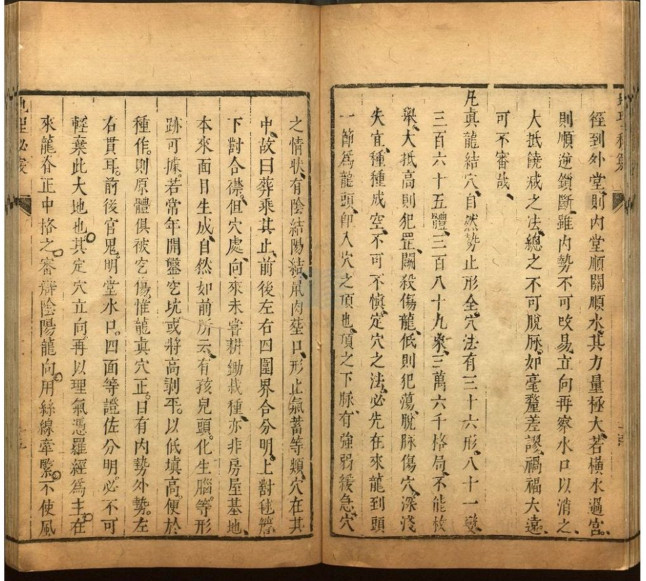 徑到外堂則內堂順關順水其力量極大若橫水過宮
則順逆鎖斷雖內勢不可改易立向再察水口以消之
大抵饒減之法總之不可脫脈如毫釐差謬禍福大遠
可不審哉
凡眞龍結穴自然勢止形全穴法有三十六形八十一變
三百六十五體三百八十九象三萬六千格局不能枚
舉大抵高則犯罡鬬殺傷龍低則犯蕩脫脈傷穴深淺
失宜種種成空不可不慎定穴之法必先在來龍到頭
一節爲龍頭卽入穴之頂也頂之下脈有強弱緩急穴
之情狀有陰結陽結氣肉莖口形止氣蓄等類穴在其
中故曰葬乘其止前後左右四圍界合分明上對毬簷
下對合襟但穴處向來未嘗耕鋤栽種亦非房屋基地
本來面目生成自然如前所云有孩兒頭化生腦等形
跡可據若常年開鑿宅坑或將高剥平以低填高便於
種作則原體俱被宅傷惟龍眞穴正自有內勢外勢左
右貫耳前後官鬼明堂水口四面等證佐分明必不可
輕棄此大地也其定穴立向再以理氣憑羅經爲主在
來龍脊正中格之審辨陰陽龍向用絲線牽緊不使風
地理必